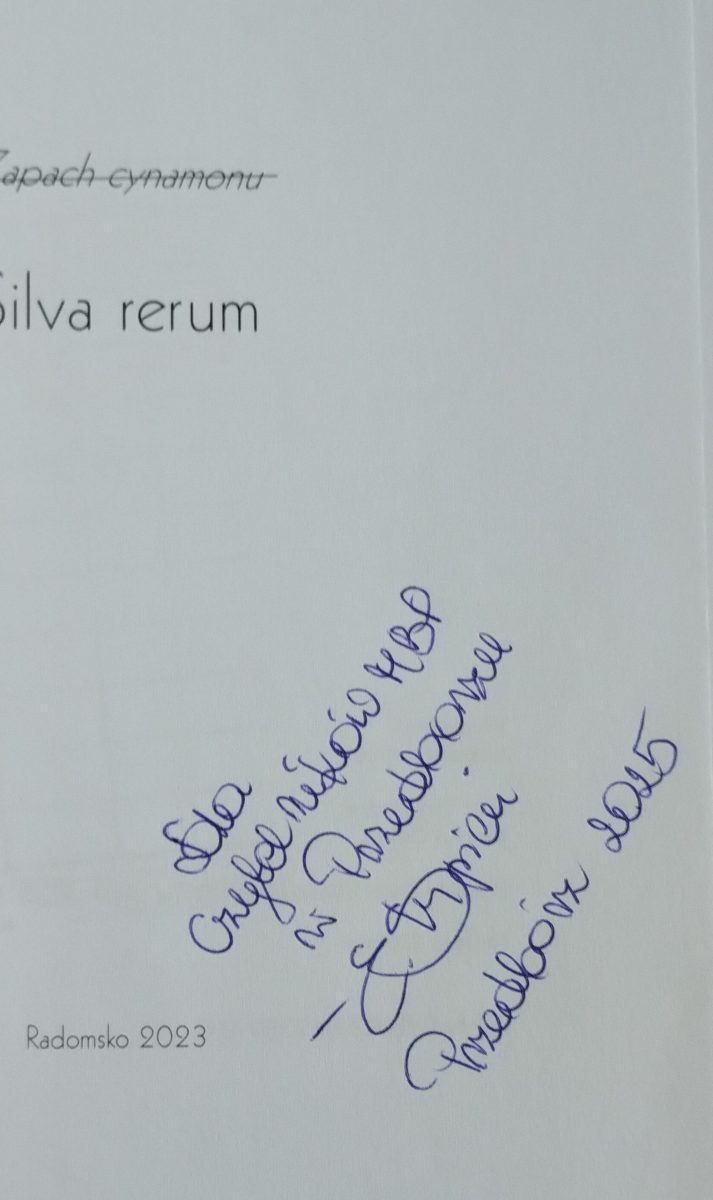 Zapach cynamonu
Silva rerum
Dla
Czytelników MBP
w Przedborzu
Przedbórz 2025
Radomsko 2023